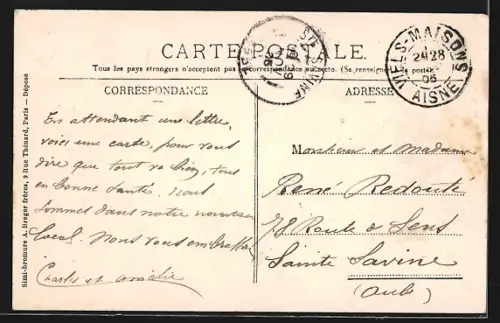 CARTE POSTALE
Tous les pays étrangers n'acceptent pas la correspondance au recto. (Se renseigner à la poste)
CORRESPONDANCE
ADRESSE
En attendant une lettre,
voici une carte, pour vous
dire que tout va bien, tous
en bonne santé. nous
sommes dans notre nouveau
local. Nous vous embrassons
Charles et Amélie
Monsieur et Madame
René Redouté
78 Route de Sens
Sainte Savine
(Aube)
VIELS-MAISONS
28
06
AISNE
STE SAVINE
Simi-bromure A. Breger frères, 9 Rue Thénard, Paris — Déposé